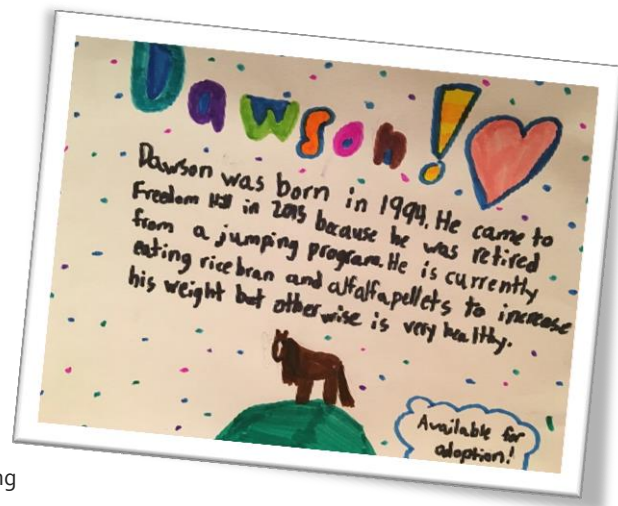 Dawson!
Dawson was born in 1994. He came to
Freedom Hill in 2015 because he was retired
from a jumping program. He is currently
eating rice bran and alfalfa pellets to increase
his weight but otherwise is very healthy.
Available for
adoption!
ng